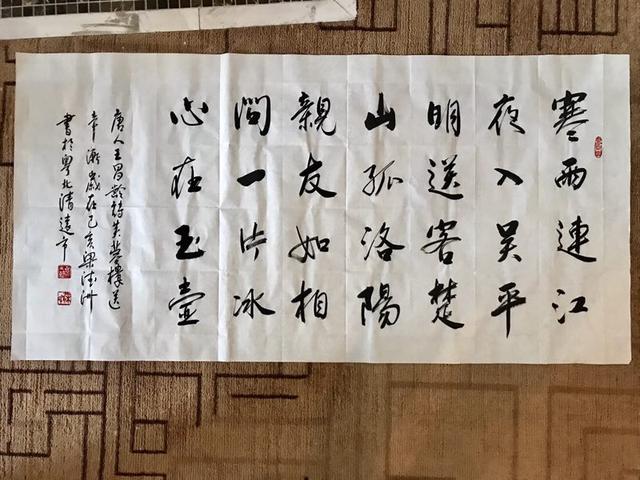 寒雨連江
夜入吴平
明送客楚
山孤洛陽
親友如相
問一片冰
心在玉壺
唐人王昌齡詩芙蓉樓送
辛漸歲在己亥梁
書於粤北清遠市